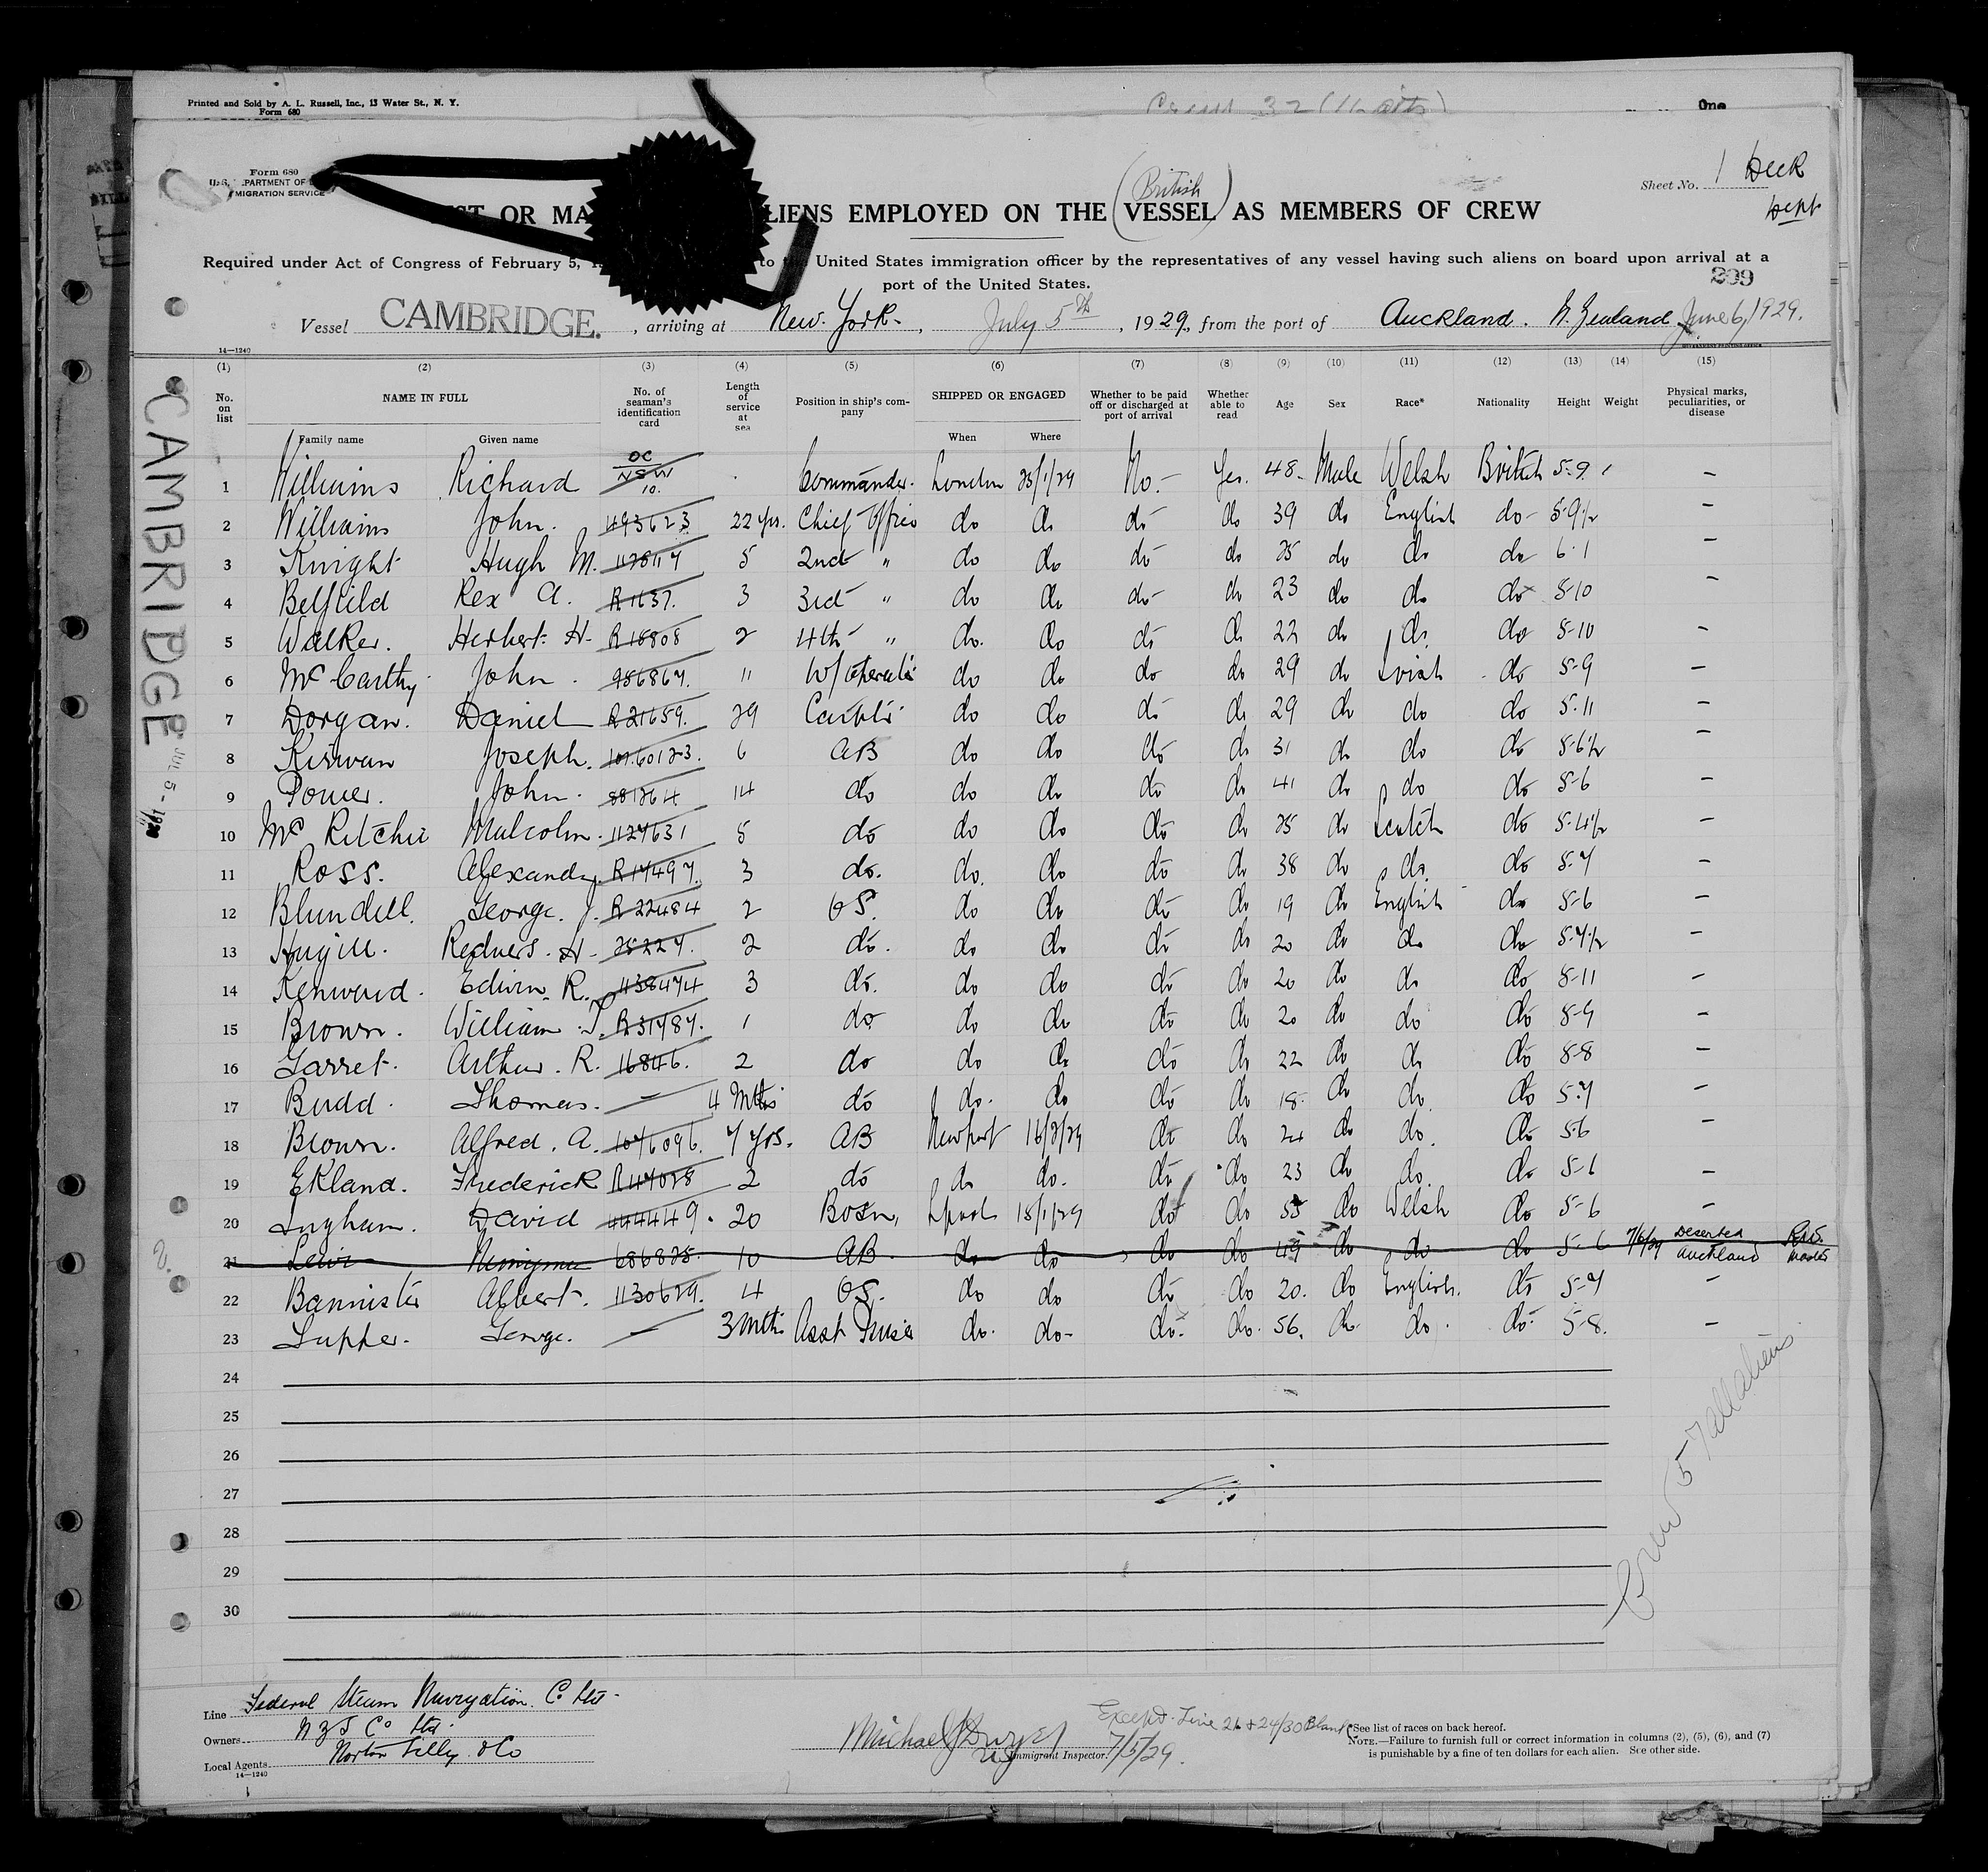 Printed and Sold by A. L. Russell, Inc., 13 Water St., N. Y.
Form 680
One
Form 680
MIGRATION SERVICE
Sheet No. 1 Deck Dept
(British)
LIENS EMPLOYED ON THE VESSEL AS MEMBERS OF CREW
Required under Act of Congress of February 5, United States immigration officer by the representatives of any vessel having such aliens on board upon arrival at a
port of the United States.
209
Vessel CAMBRIDGE. , arriving at New York , July 5th , 1929, from the port of Auckland. N. Zealand June 6, 1929.
14—1240
(1) (2) (3) (4) (5) (6) (7) (8) (9) (10) (11) (12) (13) (14) (15)
No. on list NAME IN FULL No. of seaman's identification card Length of service at sea Position in ship's company SHIPPED OR ENGAGED Whether to be paid off or discharged at port of arrival Whether able to read Age Sex Race* Nationality Height Weight Physical marks, peculiarities, or disease
Family name Given name When Where
1 Williams Richard OC NSW 10. Commander. London 23/1/29 No.- Yes. 48. Male Welsh British 5-9 -
2 Williams John. 493623 22 yrs. Chief Officer do do do do 39 do English do 5-9½ -
3 Knight Hugh M. 5 2nd " do do do do 25 do do do 6-1 -
4 Belfield Rex A. R1637. 3 3rd " do do do do 23 do do do 5-10
5 Walker. Herbert H. R18808 2 4th " do. do do do 22 do do. do 5-10 -
6 McCarthy John. 986867. 11 W/Operator do do do do 29 do Irish do 5-9 -
7 Dorgan. Daniel R21659. 29 Carptr do do do do 29 do do do 5.11 -
8 Kirwan Joseph. 6 AB do do do do 31 do do do 5-6½ -
9 Power. John. 881264 14 do do do do do 41 do do do 5-6 -
10 McRitchie Malcolm. 1127631 5 do do do do do 25 do Scotch do 5-4½ -
11 Ross. Alexander. R17497. 3 do. do. do do do 38 do do. do 5.7 -
12 Blundell. George. J. R22484 2 OS. do do do do 19 do English do 5-6 -
13 Hugill. Redvers. H. 25227. 2 do. do do do do 20 do do do 5.7½ -
14 Kenward. Edwin. R. 1138474 3 do. do do do do 20 do do do 5-11 -
15 Brown. William. T. R31787. 1 do do do do do 20 do do do 5-9 -
16 Garret. Arthur. R. 16846. 2 do do do do do 22 do do do 5-8 -
17 Budd. Thomas. - 4 Mths do do. do do do 18. do do do 5.7 -
18 Brown. Alfred. A. 1076096. 7 yrs. AB Newport 16/2/29 do do 24 do do. do 5-6 -
19 Ekland. Frederick R47028 2 do do do. do do 23 do do. do 5-6 -
20 Ingham. David 444449. 20 Bosn, Lpool 15/1/29 do do 55 do Welsh do 5-6 -
21 Lewis 686825. 10 AB do do do do 49 do do do 5-6 7/6/29 Deserted Auckland R.W. Master
22 Bannister Albert. 1130629. 4 OS. do do do do 20. do English. do 5-7 -
23 Supper. George. - 3 Mths Asst do. do- do- do. 56. do do. do- 5-8. -
24
25
26
27
28
29
30
CAMBRIDGE
JUL 5 - 1929
Crew 57 all aliens
Line Federal Steam Navigation. Co Ltd.
Owners N Z S Co Ltd.
Local Agents Norton Lilly & Co
14—1240
Except Line 21 & 24/30 Blank
Michael J Dwyer
Immigrant Inspector. 7/5/29.
*See list of races on back hereof.
NOTE.—Failure to furnish full or correct information in columns (2), (5), (6), and (7)
is punishable by a fine of ten dollars for each alien. See other side.